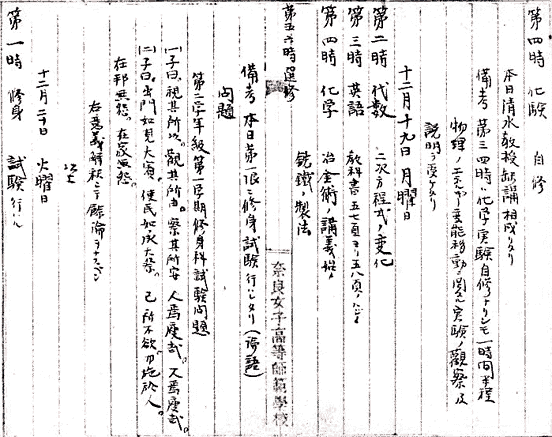 第四時 化験 自修
本日清水教授缺講相成リタリ
備考 第三四時ハ化学実験自修ナリシモ一時間半程
物理ノエネルギー変態移動ニ関スル実験ノ観察及
説明ヲ受ケタリ
十二月十九日 月曜日
第二時 代数 二次方程式ノ変化
第三時 英語 教科書五七頁ヨリ五八頁ノ
第四時 化学 冶金術ノ講義始
銑鐵ノ製法
第五六時 選修
備考 本日第一限ニ修身試験行レタリ(論語)
問題
第二学年級第一学期修身科試験問題
(一)子曰。視其所以。觀其所由。察其所安。人焉廋哉。人焉廋哉。
(二)子曰。出門如見大賓。使民如承大祭。己所不欲。勿施於人。
在邦無怨。在家無怨。
右ノ意義解釈シテ餘論ヲ
以上
十二月二十日 火曜日
第一時 修身 試験行ハル
奈良女子高等師範學校